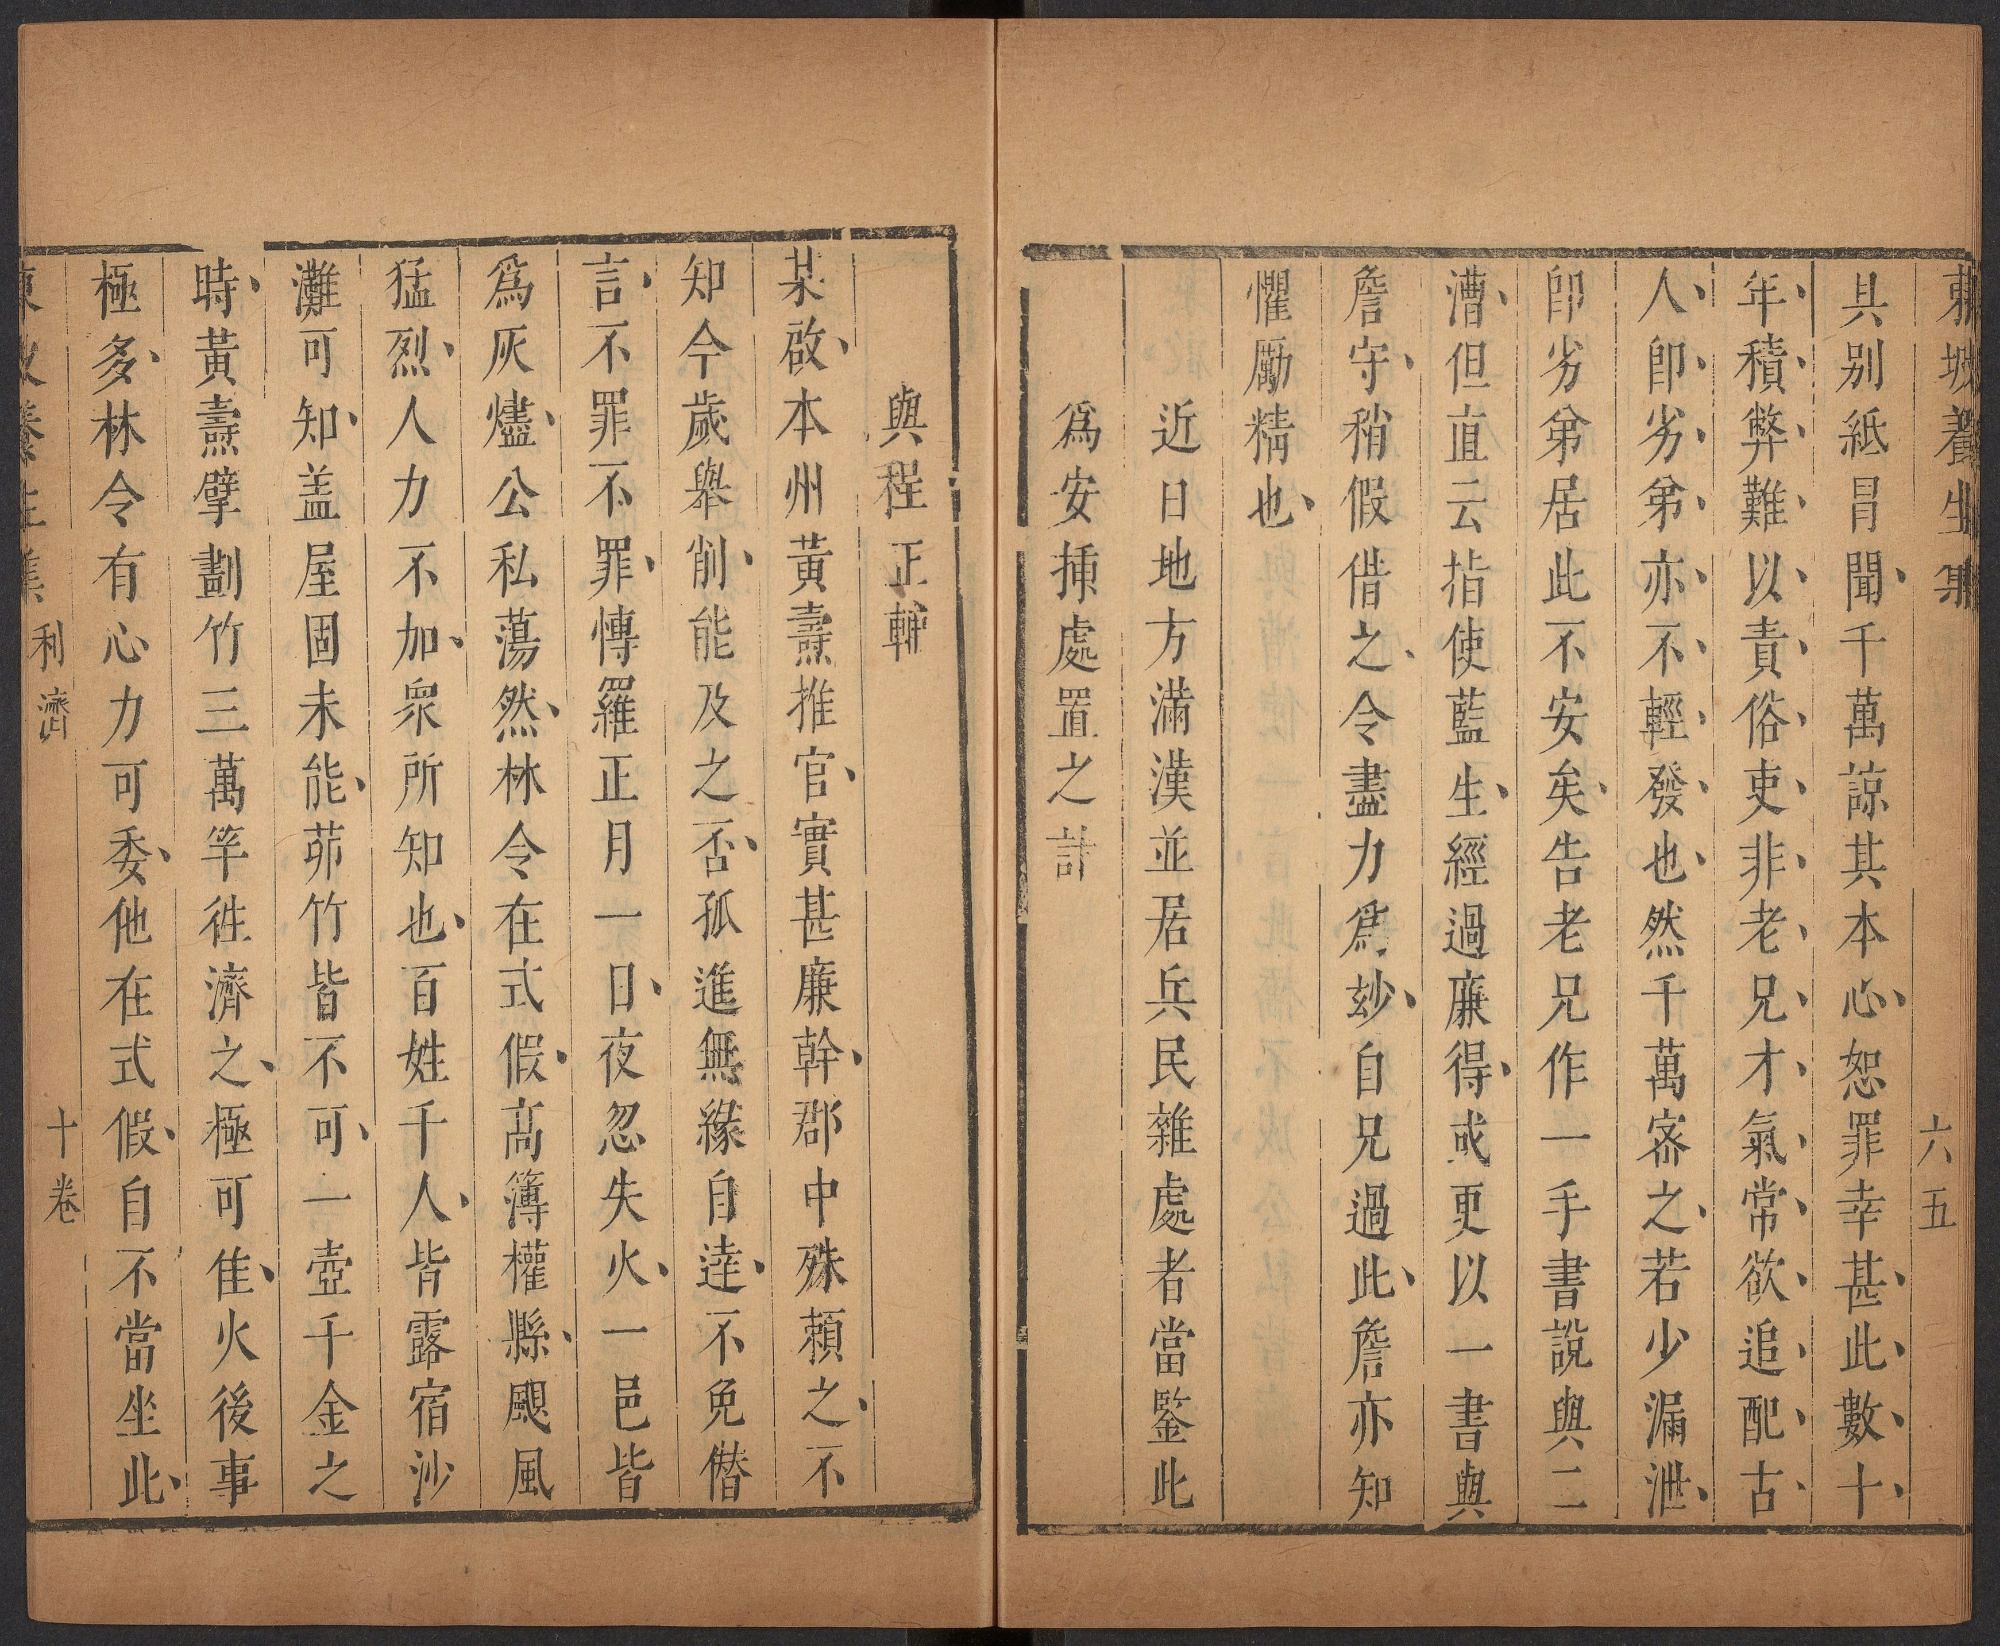 東坡養生集 六五
具别紙冒聞千萬諒其本心恕罪幸甚此數十
年積弊難以責俗吏非老兄才氣常欲追配古
人卽劣弟亦不輕發也然千萬宻之若少漏泄
卽劣弟居此不安矣告老兄作一手書說與二
漕但直云指使藍生經過亷得或更以一書與
詹守稍假借之令盡力爲玅自兄過此詹亦知
懼勵精也
近日地方滿漢並居兵民雜處者當鑒此
爲安揷處置之計
與程正輔
某啟本州黃燾推官實甚亷幹郡中殊賴之不
知今歲舉削能及之否孤進無緣自逹不免僣
言不罪不罪愽羅正月一日夜忽失火一邑皆
爲灰燼公私蕩然林令在式假髙簿權縣颶風
猛烈人力不加衆所知也百姓千人皆露宿沙
灘可知盖屋固未能茆竹皆不可一壺千金之
時黃燾擘劃竹三萬竿徃濟之極可佳火後事
極多林令有心力可委他在式假自不當坐此
東坡養生集 利濟 十卷